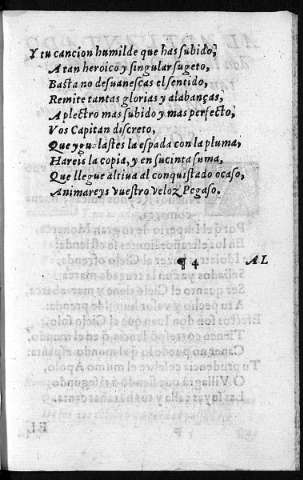 Y tu cancion humilde que has subido,
A tan heroico y singular sugeto,
Basta no desuanescas el sentido,
Remite tantas glorias y alabanças,
A plectro mas subido y mas perfecto,
Vos Capitan discreto,
Que ygualastes la espada con la pluma,
Hareis la copia, y en sucinta suma,
Que llegue altiua al conquistado ocaso,
Animareys vuestro veloz Pegaso.
¶ 4 AL